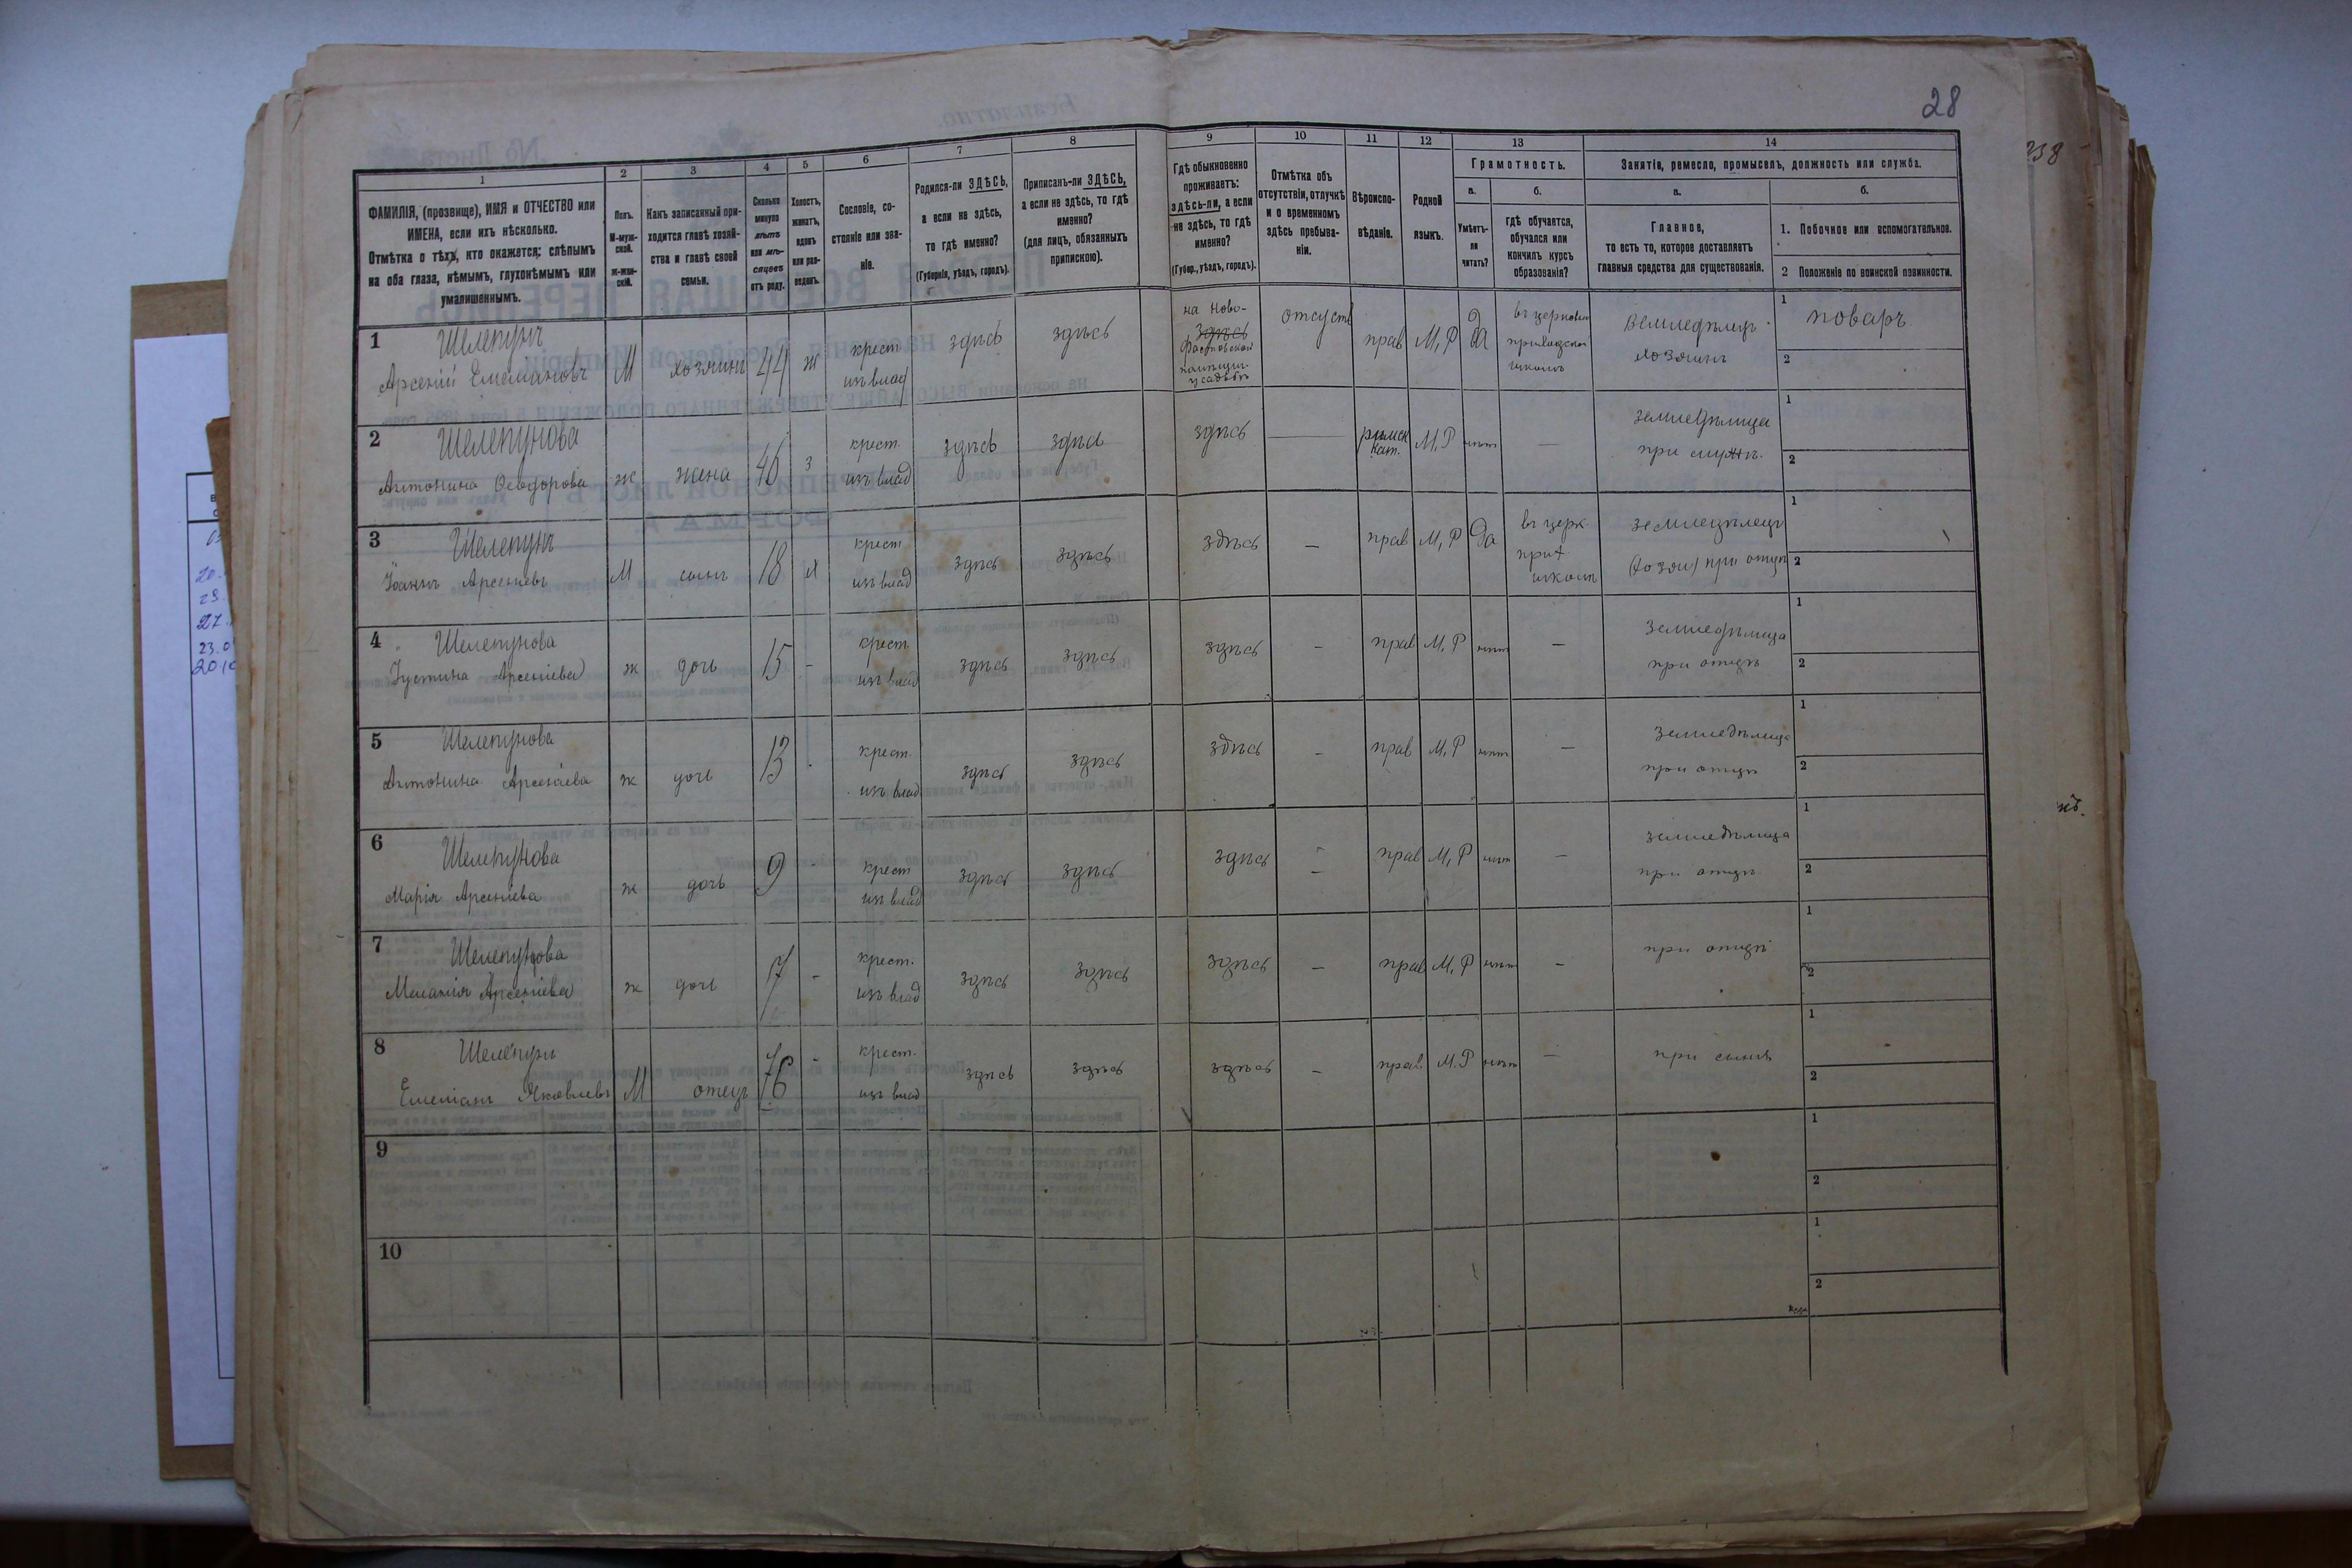 28
238
1
2
3
4
5
6
7
8
9
10
11
12
13
14
ФАМИЛІЯ, (прозвище), ИМЯ и ОТЧЕСТВО или
ИМЕНА, если ихъ нѣсколько.
Отмѣтка о тѣхъ, кто окажется: слѣпымъ
на оба глаза, нѣмымъ, глухонѣмымъ или
умалишеннымъ.
Полъ.
М-муж-
ской.
ж-жен-
скій.
Какъ записанный при-
ходится главѣ хозяй-
ства и главѣ своей
семьи.
Сколько
минуло
лѣтъ
или мѣ-
сяцевъ
отъ роду.
Холостъ,
женатъ,
вдовъ
или раз-
веденъ.
Сословіе, со-
стояніе или зва-
ніе.
Родился-ли ЗДѢСЬ,
а если не здѣсь,
то гдѣ именно?
(Губернія, уѣздъ, городъ).
Приписанъ-ли ЗДѢСЬ,
а если не здѣсь, то гдѣ
именно?
(для лицъ, обязанныхъ
припискою).
Гдѣ обыкновенно
проживаетъ:
здѣсь-ли, а если
не здѣсь, то гдѣ
именно?
(Губер., уѣздъ, городъ).
Отмѣтка объ
отсутствіи, отлучкѣ
и о временномъ
здѣсь пребыва-
ніи.
Вѣроиспо-
вѣданіе.
Родной
языкъ.
Грамотность.
а.
б.
Умѣетъ-
ли
читать?
гдѣ обучается,
обучался или
кончилъ курсъ
образованія?
Занятіе, ремесло, промыселъ, должность или служба.
а.
б.
Главное,
то есть то, которое доставляетъ
главныя средства для существованія.
1. Побочное или вспомогательное.
2 Положеніе по воинской повинности.
1
Шелепунъ
Арсеній Емеліановъ
М
хозяинъ
44
ж
крест
изъ влад
здѣсь
здѣсь
на Ново-
здѣсь
усадьбѣ
отсутс
прав
М, Р
да
школѣ
Земледѣлецъ
хозяинъ
1
поваръ
2
2
Шелепунова
Антонина Ѳеодорова
ж
жена
з
крест.
изъ влад
здѣсь
здѣсь
здѣсь
—
римск
кат.
М, Р
нѣтъ
—
земледѣлица
при мужѣ.
1
2
3
Шелепунъ
Іоаннъ Арсеніевъ
М
сынъ
18
х
крест
изъ влад
здѣсь
здѣсь
здѣсь
—
прав
М, Р
да
въ церк.
прих
школѣ
земледѣлецъ
(хозяи) при отцѣ
1
2
4
Шелепунова
Іустина Арсеніева
ж
дочь
15
-
крест.
изъ влад
здѣсь
здѣсь
здѣсь
-
прав
М, Р
нѣтъ
—
земледѣлица
при отцѣ
1
2
5
Шелепунова
Антонина Арсеніева
ж
дочь
13
крест.
изъ влад
здѣсь
здѣсь
здѣсь
-
прав
М, Р
нѣтъ
—
земледѣлица
при отцѣ
1
2
6
Шелепунова
Марія Арсеніева
ж
дочь
9
-
крест
изъ влад
здѣсь
здѣсь
здѣсь
—
прав
М, Р
нѣтъ
—
земледѣлица
при отцѣ
1
2
7
Шелепунова
Меланія Арсеніева
ж
дочь
7
-
крест.
изъ влад
здѣсь
здѣсь
здѣсь
—
прав
М, Р
нѣтъ
—
при отцѣ
1
2
8
Шелепунъ
Емеліанъ Яковлевъ
М
отецъ
76
-
крест.
изъ влад
здѣсь
здѣсь
здѣсь
—
прав
М. Р
нѣтъ
—
при сынѣ
1
2
9
1
2
10
1
2